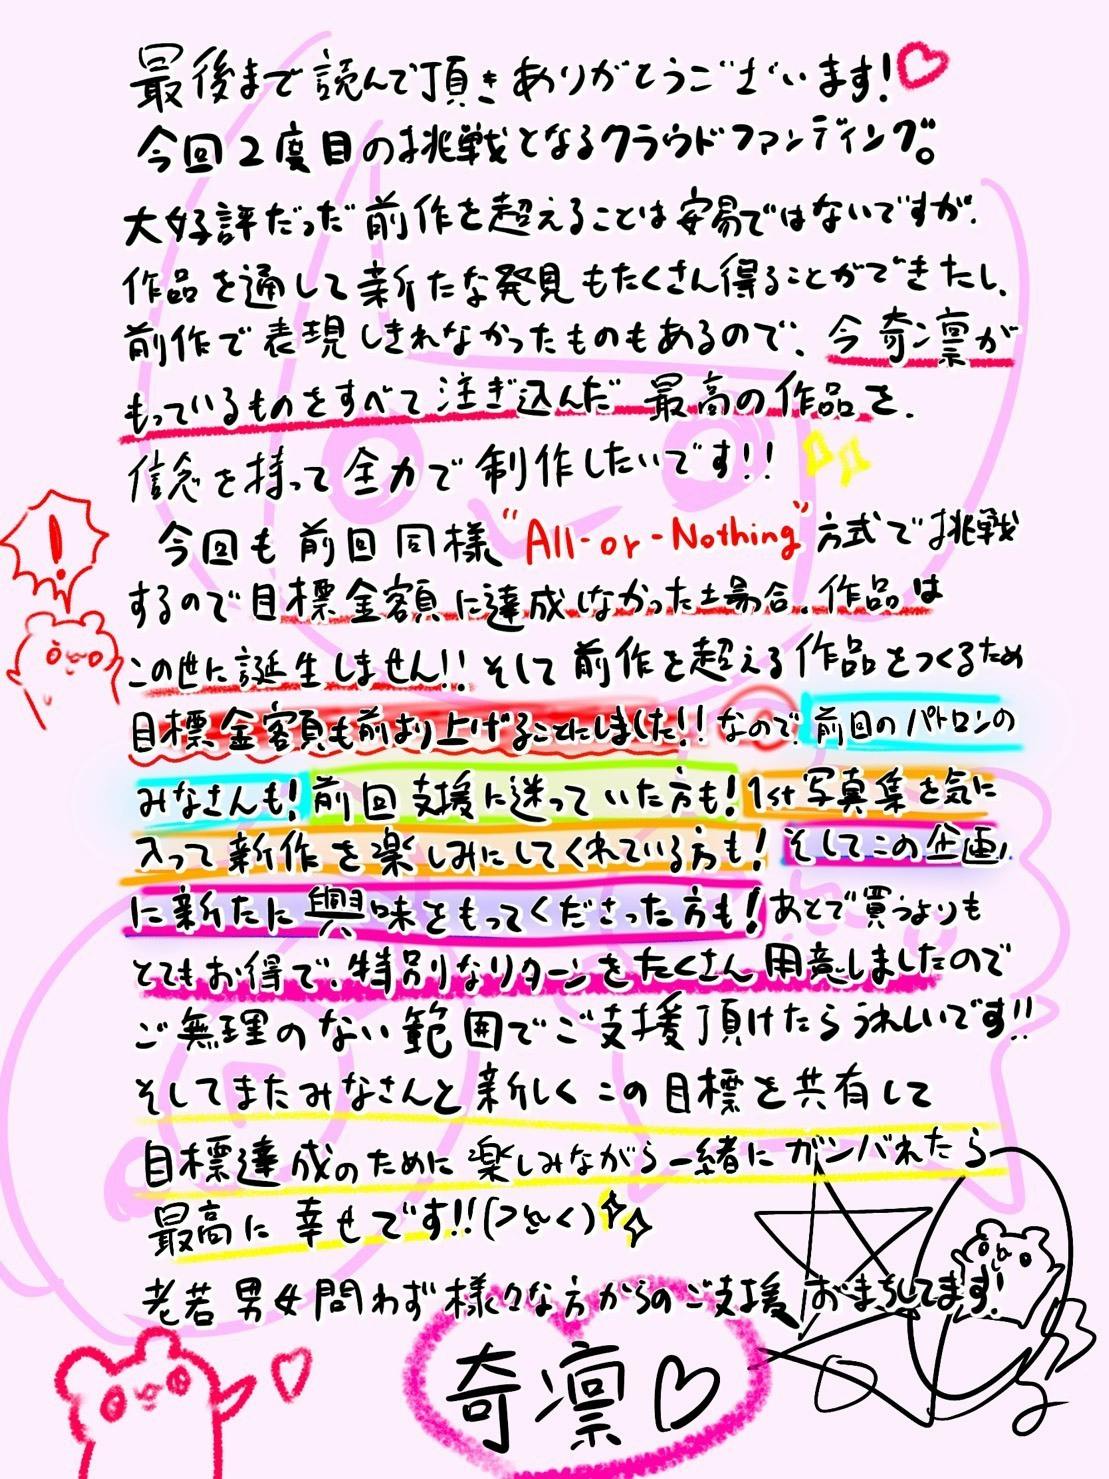 最後まで読んで頂きありがとうございます!♡
今回2度目の挑戦となるクラウドファンディング。
大好評だっだ前作を超えることは安易ではないですが、
作品を通して新たな発見もたくさん得ることができたし、
前作で表現しきれなかったものもあるので、今奇凛が
もっているものをすべて注ぎ込んだ最高の作品を、
信念を持って全力で制作したいです!!
今回も前回同様"All-or-Nothing"方式で挑戦
するので目標金額に達成しなかった場合、作品は
この世に誕生しません!!そして前作を超える作品をつくるため
目標金額も前より上げることにしました!!なので、前回のパトロンの
みなさんも!前回支援に迷っていた方も!1st写真集を気に
入って新作を楽しみにしてくれている方も!そしてこの企画
に新たに興味をもってくださった方も!あとで買うよりも
とてもお得で、特別なリターンをたくさん用意しましたので
ご無理のない範囲でご支援頂けたらうれしいです!!
そしてまたみなさんと新しくこの目標を共有して
目標達成のために楽しみながら一緒にガンバれたら
最高に幸せです!!
老若男女問わず様々な方からのご支援おまちしてます!
奇凛♡
!